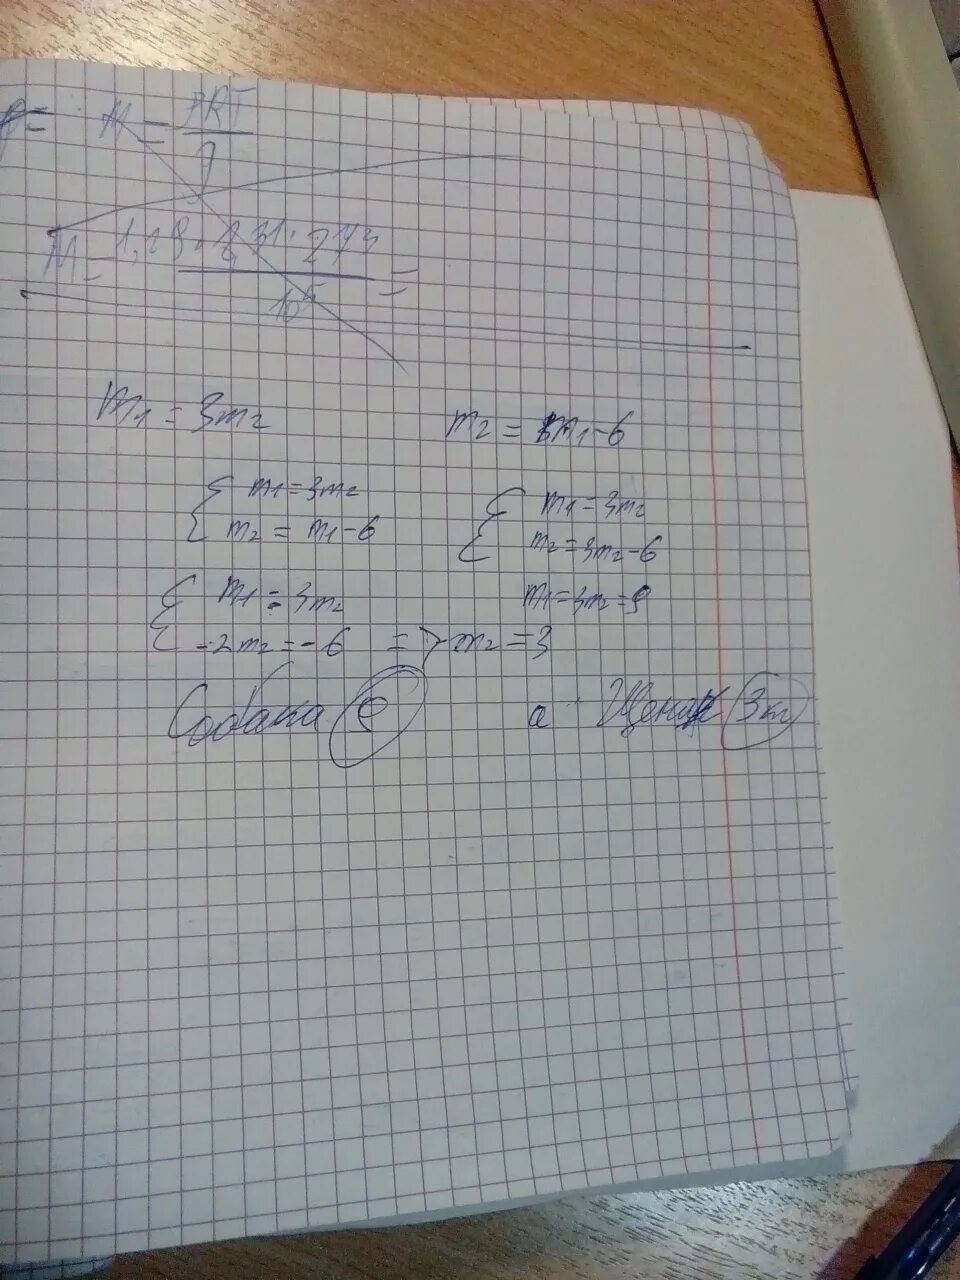 p= M = PRT
M = 1,29 · 8,31 · 273 =
10⁵
m1 = 3m2 m2 = m1-6
{ m1 = 3m2 { m1 = 3m2
m2 = m1-6 m2 = 3m2-6
{ m1 = 3m2 m1 = 3m2 = 9
-2m2 = -6 => m2 = 3
Собака 9 а Щенок 3кг